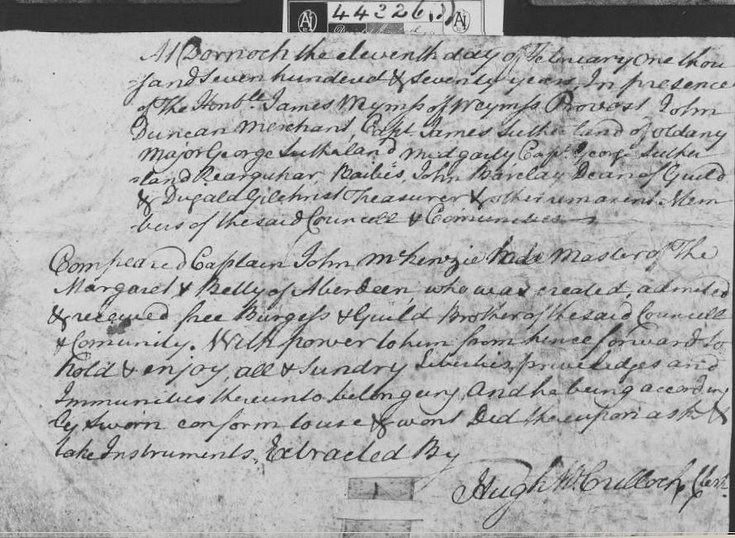 44226
At Dornoch the eleventh day of February One thou
=sand seven hundered & Seventy years, In presence
of The Honble. James Wymss of Weymss Provost John
Duncan Merchant, Capt. James Sutherland of
Major George Sutherland midgarty Capt. George Suther
=land Rearquhar Bailies, John Barclay Dean of Guild
& Dugald Gilchrist Treasurer & other remanent Mem
bers of the said Councill & Comunities
Compeared Captain John McKenzie Master of The
Margaret & Betty of Aberdeen, who was created, admited
& recieved free Burgess & Guild Brother of the said Councill
& Comunity. With power to him from hence forward to
hold & enjoy, all & Sundry Liberties, priviledges and
Immunities thereunto belonging, And he being according
ly Sworn conform to use & wont Did thereupon ask &
take Instruments, Extracted By
Hugh McCulloch Clerk